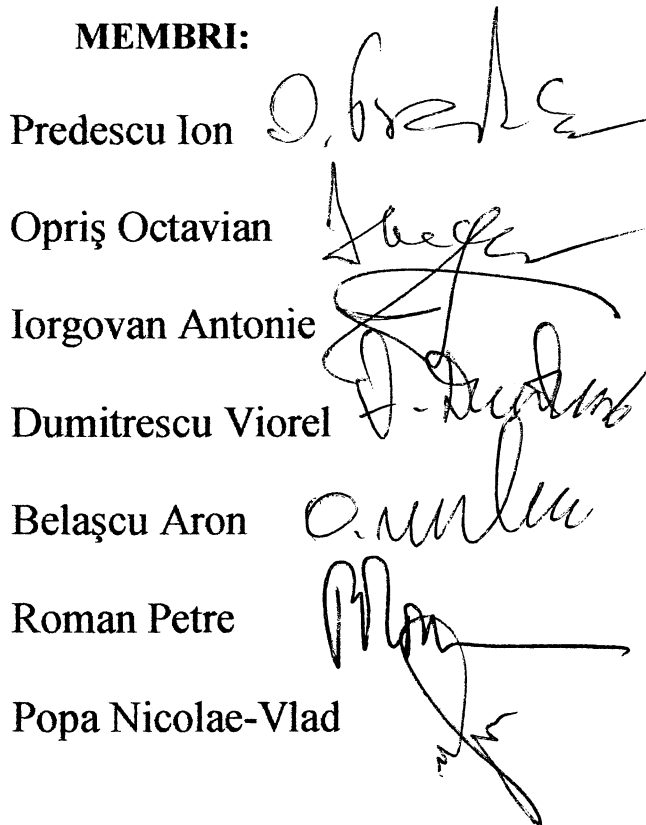 MEMBRI:
Predescu Ion
Opriş Octavian
Iorgovan Antonie
Dumitrescu Viorel
Belaşcu Aron
Roman Petre
Popa Nicolae-Vlad